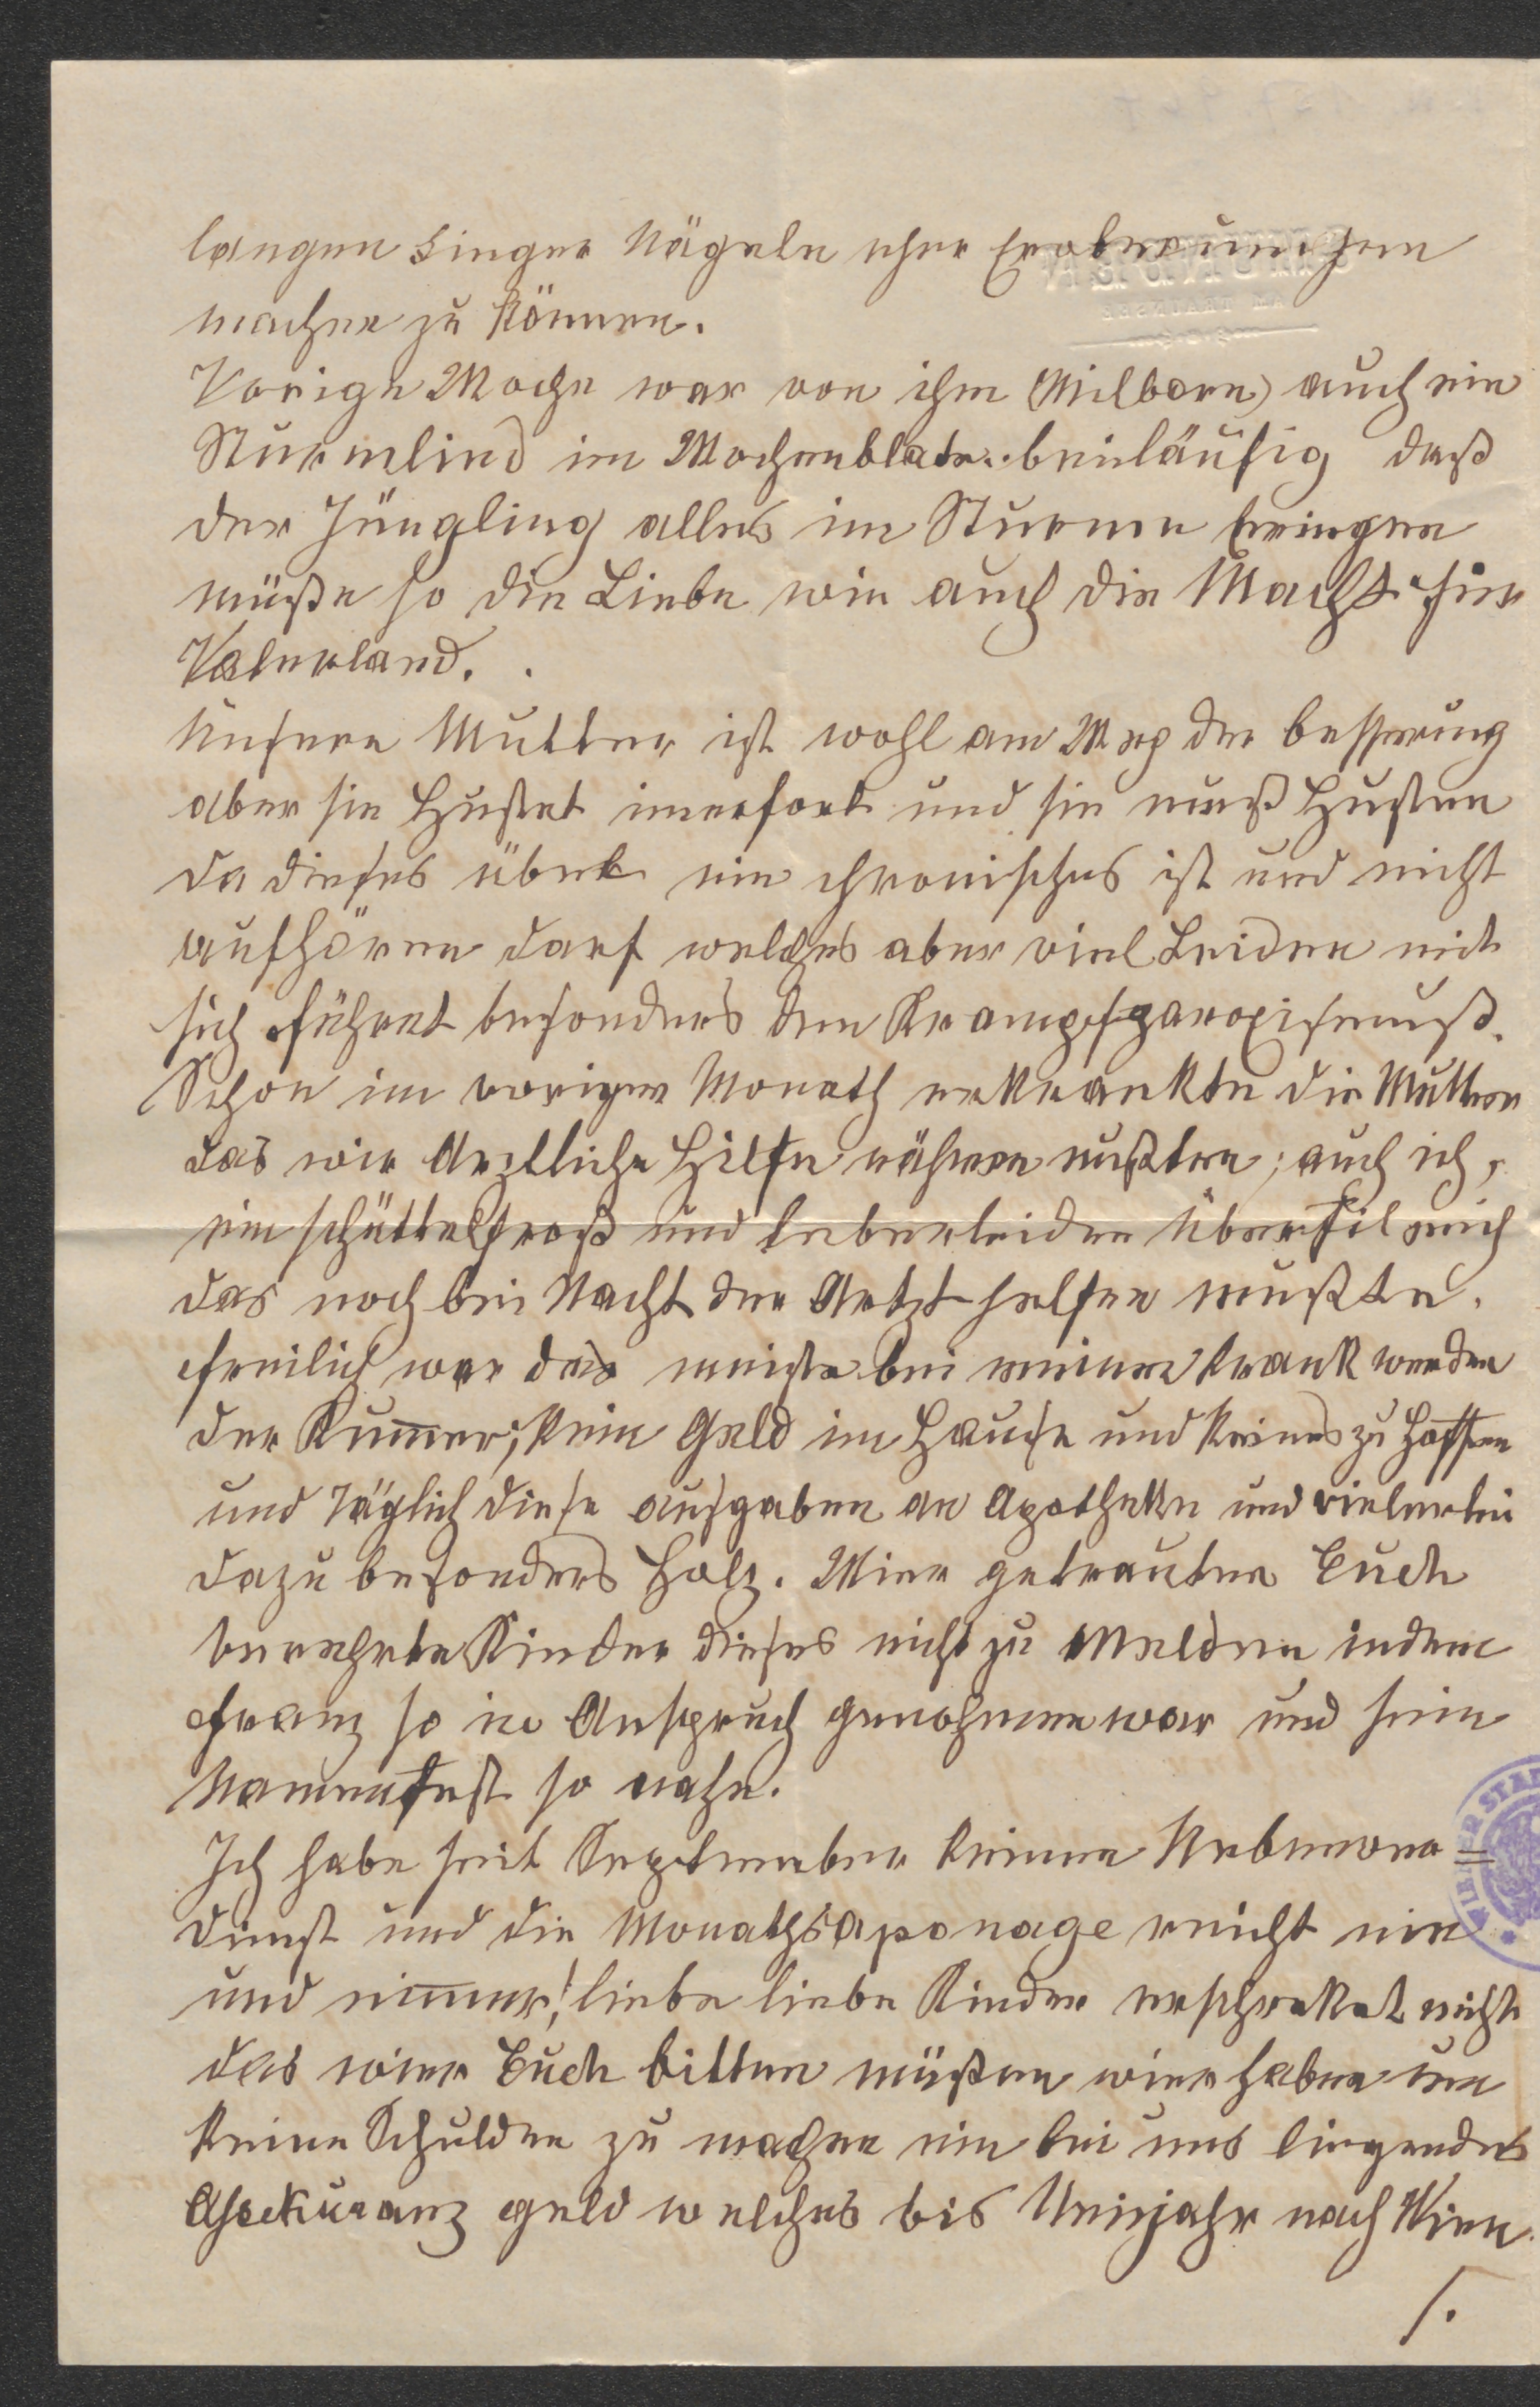 langen Finger Nägeln eher Eroberungen
machen zu können.
Vorige Woche war von ihm (Milborn) auch ein
Sturmlied im Wochenblate.. beiläufig daß
der Jüngling alles im Sturme bringen
müße so die Liebe wie auch die Macht fürs
Vaterland.
Unsere Mutter ist wohl am Weg der besserung
aber sie Hustet imerfort und sie muß Husten
da dieses übel ein chronisches ist und nicht
aufhören darf welches aber viel Leiden mit
sich führet besonders den Krampfparoxismuß.
Schon im vorigen Monath erkrankte die Mutter
das wir Aerztliche Hilfe nähmen mußten; auch ich,
ein schüttelfrost und Leberleiden überfil mich
das noch bei Nacht der Artzt helfen mußte.
freilich war das meiste bei meinen krank werden
der Kum̅er; kein Geld im Hause und keines zu Hoffen
und täglich diese ausgaben an Apotheken und vielerlei
dazu besonders Holz. Wier getrauten Euch
verehrte Kinder dieses nicht zu Melden indem
Franz so in Anspruch genohmen war und sein
Namensfest so nahe.
Ich habe seit September keinen Nebenver=
dienst und die Monathsaponage reicht nie
und nim̅er! liebe liebe Kinder erschreket nicht
das wier Euch bitten müßen wier haben um
keine Schulden zu machen ein bei uns liegendes
Asekuranz geld welches bis Neujahr nach Wien
/.